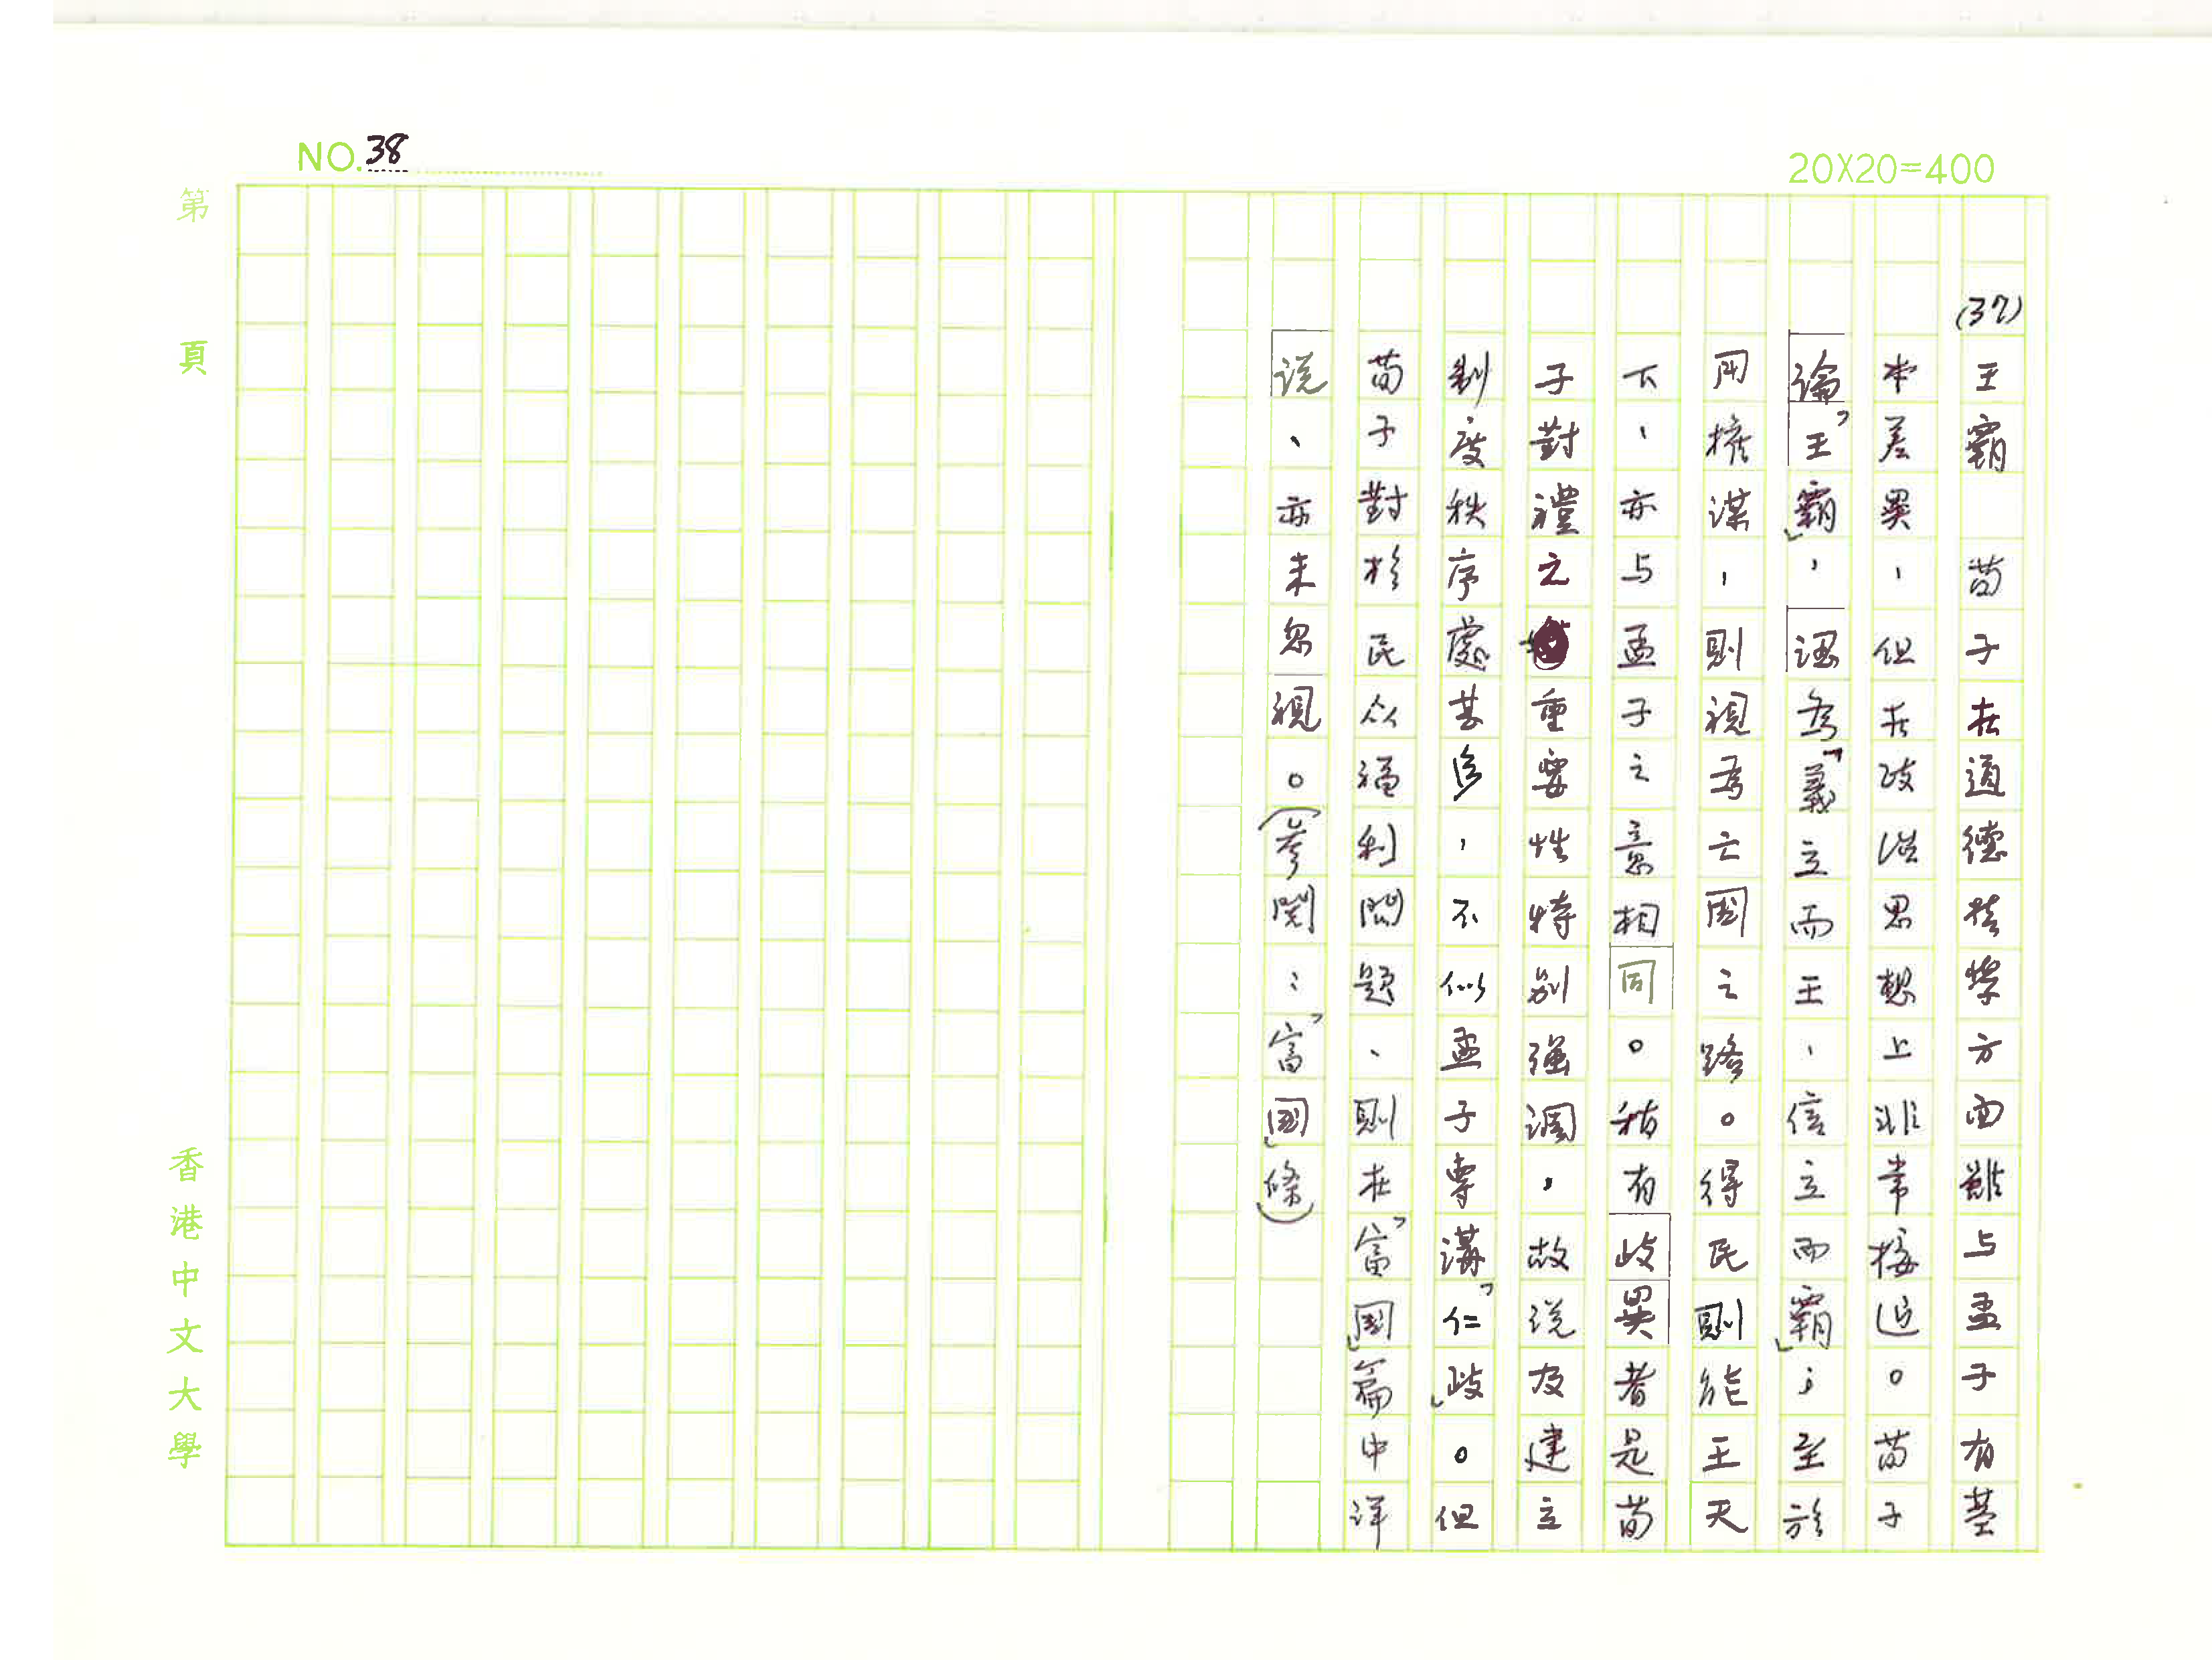 NO.38
20X20=400
(37)
王霸 荀子在道德哲學方面雖与孟子有基
本差異,但在政治思想上非常接近。荀子
論「王霸」,認為「義立而王,信立而霸」;至於
用權謀,則視為亡國之路。得民則能王天
下,亦与孟子之意相同。稍有歧異者是荀
子對禮之重要性特別強調,故說及建立
制度秩序處甚多,不似孟子專講「仁政」。但
荀子對於民众福利問題、則在「富國」篇中詳
說、亦未忽視。(參閱:「富國」條)
第 頁
香港中文大學